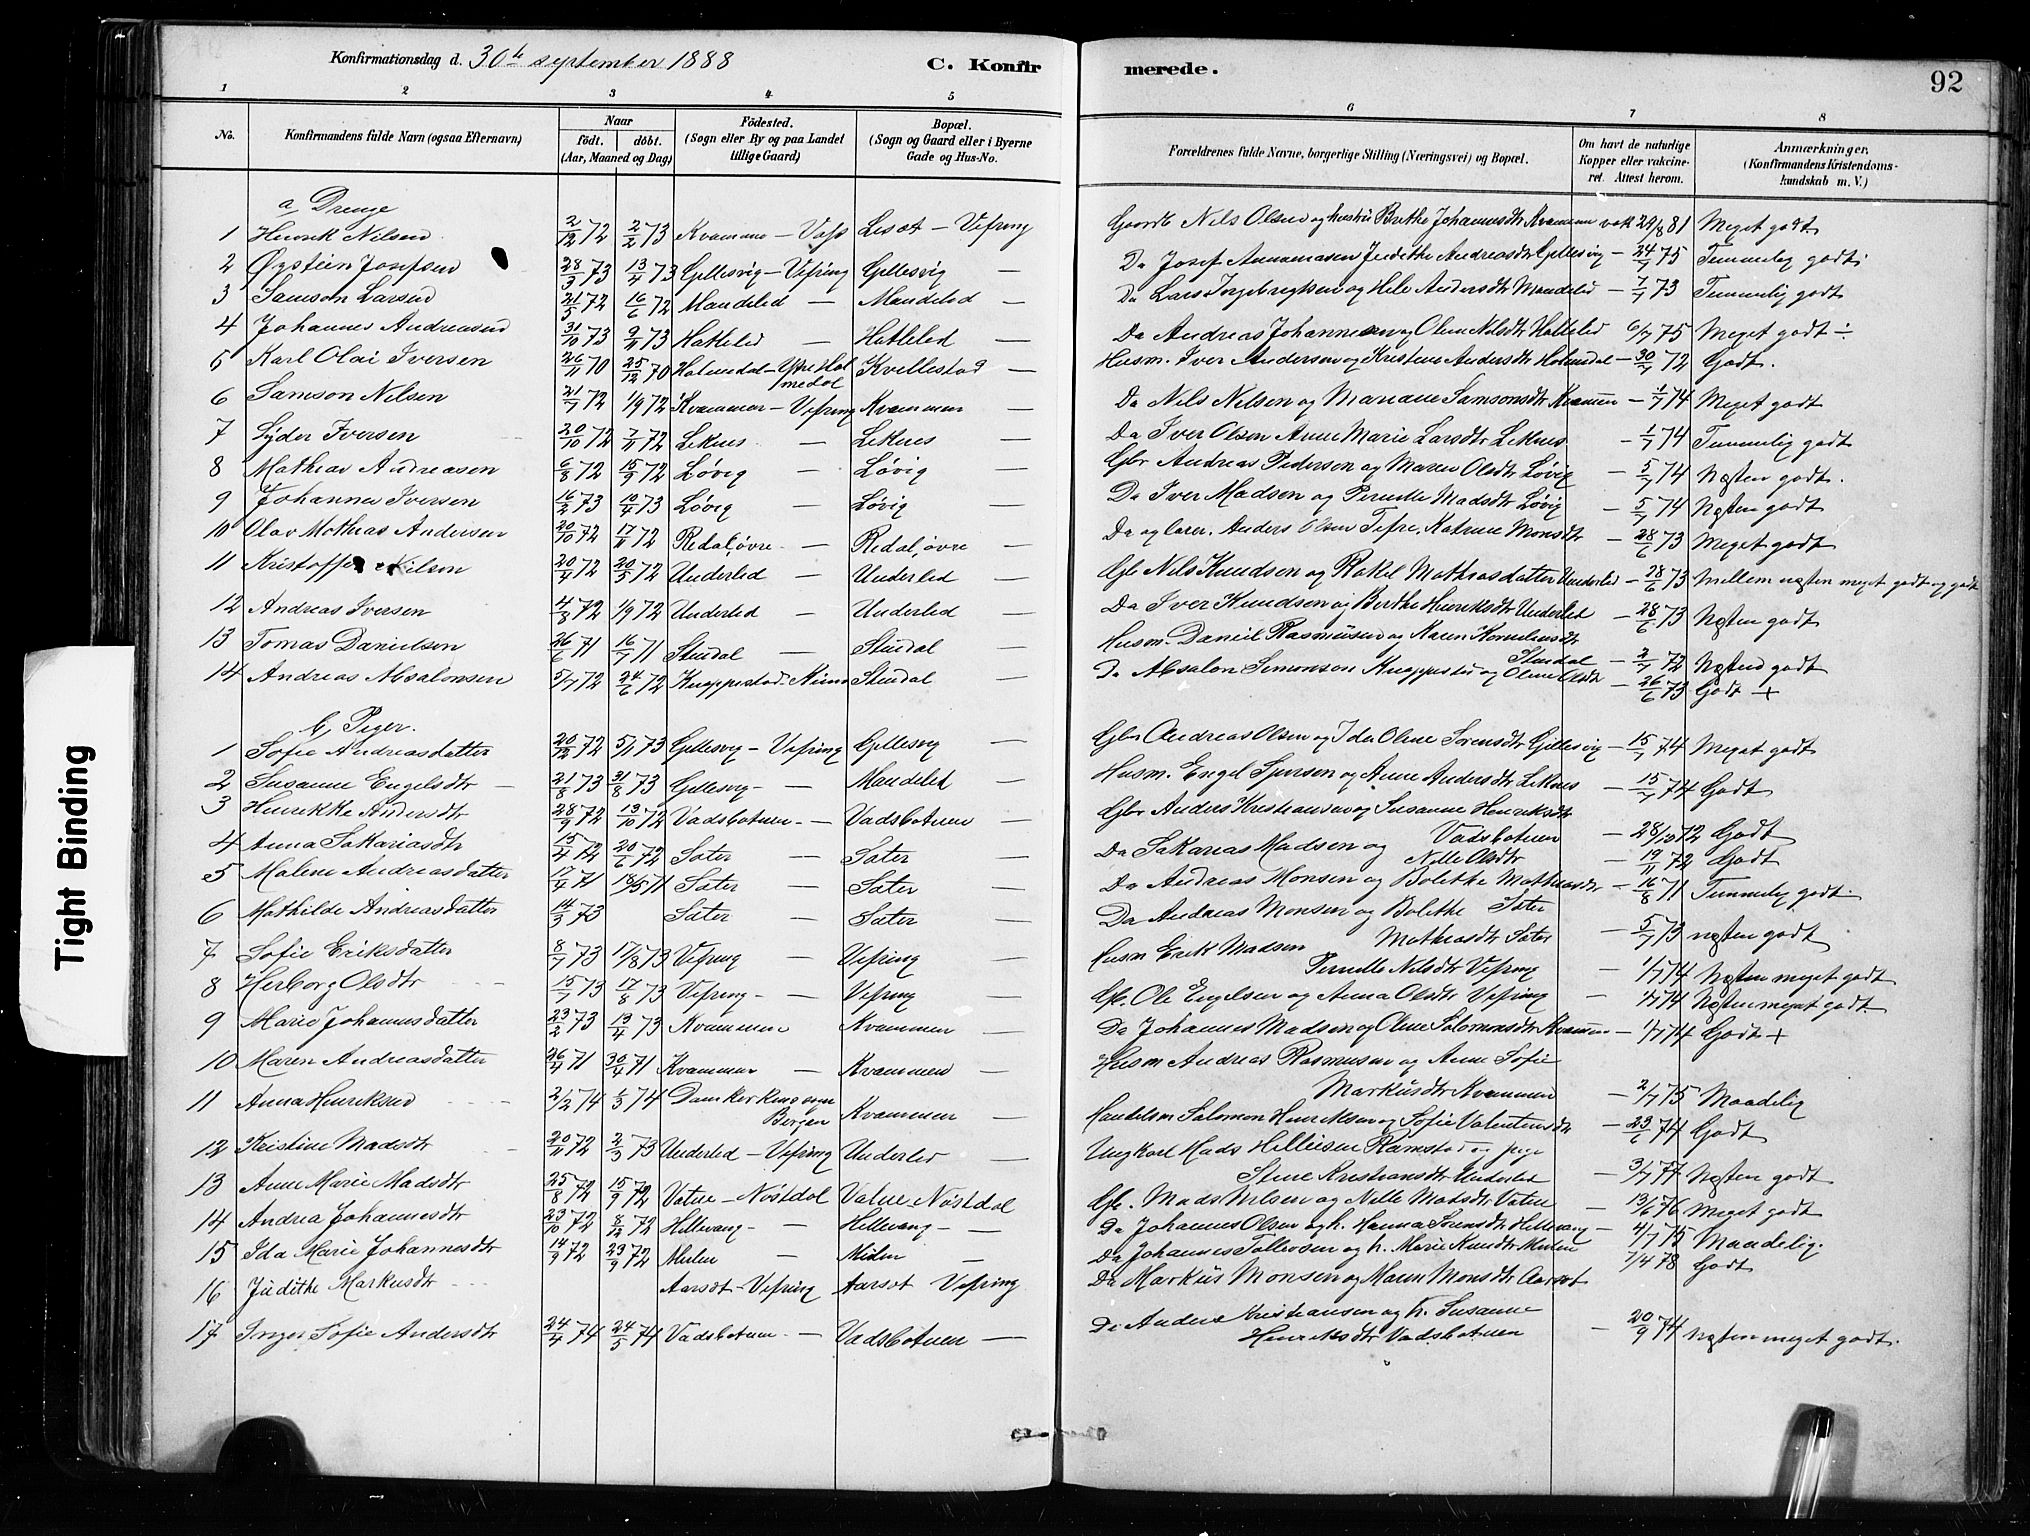 Konfirmationsdag d. 30te september 1888
C. Konfirmerede.
92
1 2 3 4 5 6 7 8
No.
Konfirmandens fulde Navn (ogsaa Efternavn)
Naar
födt. döbt.
(Aar, Maaned og Dag)
Födested.
(Sogn eller By og paa Landet tillige Gaard)
Bopæl.
(Sogn og Gaard eller i Byerne Gade og Hus-No.
Forældrenes fulde Navne, borgerlige Stilling (Næringsvei) og Bopæl.
Om havt de naturlige Kopper eller vakcineret. Attest herom.
Anmærkninger.
(Konfirmandens Kristendomskundskab m. V.)
a, Drenge
1 Henrik Nilsen 2/12 72 2/2 73 Leset – Vefring Gaardb Nils Olsen og hustru Brethe Johannesdtr Kvammen vak 29/8 81 Meget godt.
2 Øystein Josefsen 28/3 73 13/4 73 Gjellesvig – Vefring Gjellesvig – 24/7 75 Temmelig godt
3 Samson Larsen 21/5 72 16/6 72 Mandeled – Mandeled – 7/7 73 Temmelig godt
4 Johannes Andreasen 31/10 73 9/11 73 Hatleled – Hatleled – Da Andreas Johannesen og Oline Nilsdtr Hatleled 6/7 75 Meget godt ÷
5 Karl Olai Iversen 26/11 70 25/12 70 Kvellestad – Husm. Iver Andersen og Kristine Andersdtr Holmedal – 30/7 72 Godt.
6 Samson Nilsen 21/7 72 1/9 72 Kvammen – Vefring Kvammen – Da Nils Nilsen og Mariane Samsonsdtr Kvammen – 1/7 74 Meget godt
7 Syder Iversen 20/10 72 7/11 72 Leknes – Leknes – Da Iver Olsen Anne Marie Larsdtr Leknes – 1/7 74 Temmelig godt
8 Mathias Andreasen 6/8 72 15/9 72 Løvig – Løvig – Gbr Andreas Pedersen og Maren Olsdtr Løvig – 5/7 74 Næsten godt.
9 Johannes Iversen 16/2 73 10/4 73 Løvig – Løvig – Da Iver Madsen og Pernille Madsdtr Løvig – 5/7 74 Næsten godt
10 Olav Mathias Andersen 20/10 72 17/11 72 Redal, øvre – Redal, øvre – Da og lærer. Anders Olsen Tefre, Katrine Monsdtr – 28/6 73 Meget godt
11 Kristoffer Nilsen 20/4 72 20/5 72 Underled – Underled – Gb Nils Knudsen og Rakel Mathiasdatter Underled – 28/6 73 mellem næsten meget godt og godt
12 Andreas Iversen 4/8 72 1/9 72 Underled – Underled – Da Iver Knudsen og Berthe Henriksdtr Underled – 28/6 73 Næsten godt
13 Tomas Danielsen 26/6 71 16/7 71 Stendal – Stendal – Husm. Daniel Rasmusen og Karen Korneliusdtr Stendal – 2/7 72 Næsten godt
14 Andreas Absalonsen 5/7 72 24/6 72 Knappestad Stendal – Da Absalon Simonsen Knappestad og Oline Olsdtr – 26/6 73 Godt +
b, Piger.
1 Sofie Andreasdatter 20/12 72 5/1 73 Gjellesvig – Vefring Gjellesvig – Gbr Andreas Olsen og Ida Oline Sørensdtr Gjellesvig – 15/7 74 Meget godt
2 Susanne Engelsdtr 21/8 73 31/8 73 Gjellesvig – Mandeled – Husm. Engel Iversen og Anne Andersdtr Leknes – 15/7 74 Godt
3 Henrikke Andersdtr 28/9 72 13/10 72 Vadsbotnen – Vadsbotnen – Gbr Anders Kristiansen og Susanne Henriksdtr Vadsbotnen – 28/10 72 Godt
4 Anna Sakariasdtr 15/4 72 20/6 72 Sæter – Sæter – Da Sakarias Madsen og Nille Olsdtr – 19/11 72 Godt
5 Malene Andreasdatter 17/4 71 18/5 71 Sæter – Sæter – Da Andreas Monsen og Bolethe Mathiasdtr Sæter – 16/8 71 Temmelig godt.
6 Mathilde Andreasdatter 14/3 73 Sæter – Sæter – Da Andreas Monsen og Bolethe Mathiasdtr Sæter – 5/7 73 næsten godt
7 Sofie Eriksdatter 8/7 73 17/8 73 Vefring – Vefring – Husm Erik Madsen Pernille Nilsdtr Vefring – 1/7 74 Næsten meget godt
8 Herborg Olsdtr 15/7 73 17/8 73 Vefring – Vefring – Gb. Ole Engelsen og Anna Olsdtr Vefring – 1/7 74 Næsten meget godt.
9 Marie Johannesdatter 23/2 73 13/4 73 Kvammen Kvammen – Da Johannes Madsen og Oline Salomonsdtr Kvammen – 1/7 74 Godt +
10 Maren Andreasdatter 26/4 71 30/4 71 Kvammen – Kvammen – Husm Andreas Rasmusen og Anne Sofie Markusdtr Kvammen – 2/7 75 Maadelig
11 Anna Henriksen 2/2 74 1/3 74 Domkirkens sogn Bergen Kvammen – Handelsm Salomon Henriksen og Sofie Valentinsdtr – 23/6 74 Godt
12 Kristine Madsdtr 20/11 72 2/3 73 Underled – Vefring Underled – Ungkarl Mads Helliesen Ramstad og pige Stine Kristiansdtr Underled – 3/7 77 Næsten godt
13 Anne Marie Madsdtr 25/8 72 15/9 72 Vatne – Nöstdal Vatne Nöstdal Gb. Mads Nilsen og Nille Madsdtr Vatne – 13/6 76 Meget godt
14 Andrea Johannesdtr 23/10 72 8/12 72 Hillevang – Hillevang – Da Johannes Olsen og h. Hanna Sørensdtr Hillevang – 4/7 75 Maadelig.
15 Ida Marie Johannesdtr 14/9 72 29/9 72 Mulen – – Da Johannes Tollevsen og h. Marie Knudsdtr Mulen 7/4 78 Godt
16 Judithe Markusdtr Aarset – Vefring Aarset Vefring Da Markus Monsen og Maren Monsdtr Aarset
17 Inger Sofie Andersdtr 24/4 74 24/5 74 Vadsbotnen – Vadsbotnen – Da Anders Kristiansen og h. Susanne Henriksdtr Vadsbotnen – 20/9 74 Næsten meget godt.
Tight Binding